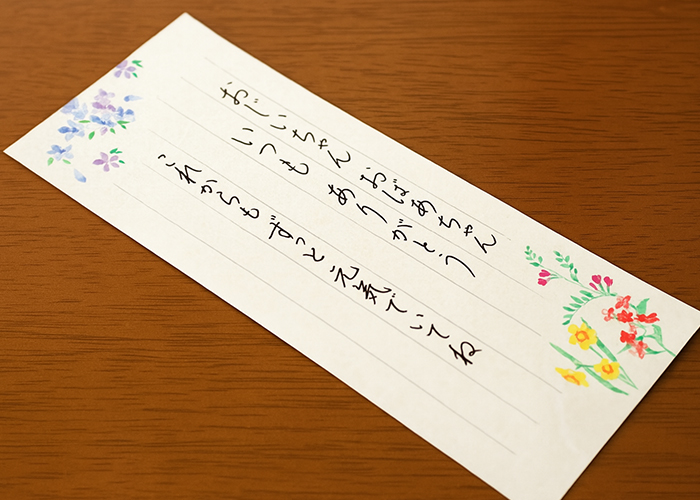 おじいちゃん おばあちゃん
いつも ありがとう
これからもずっと元気でいてね